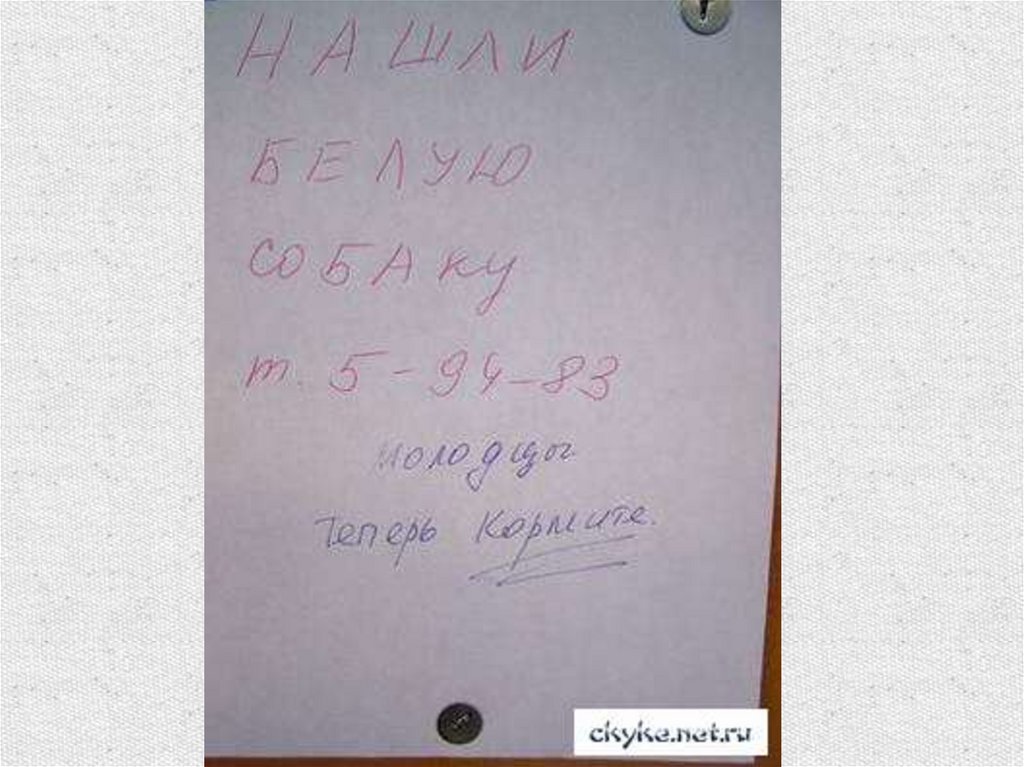 НАШЛИ
БЕЛУЮ
СОБАКУ
т. 5-94-83
молодцы
Теперь Кормите.
ckyke.net.ru